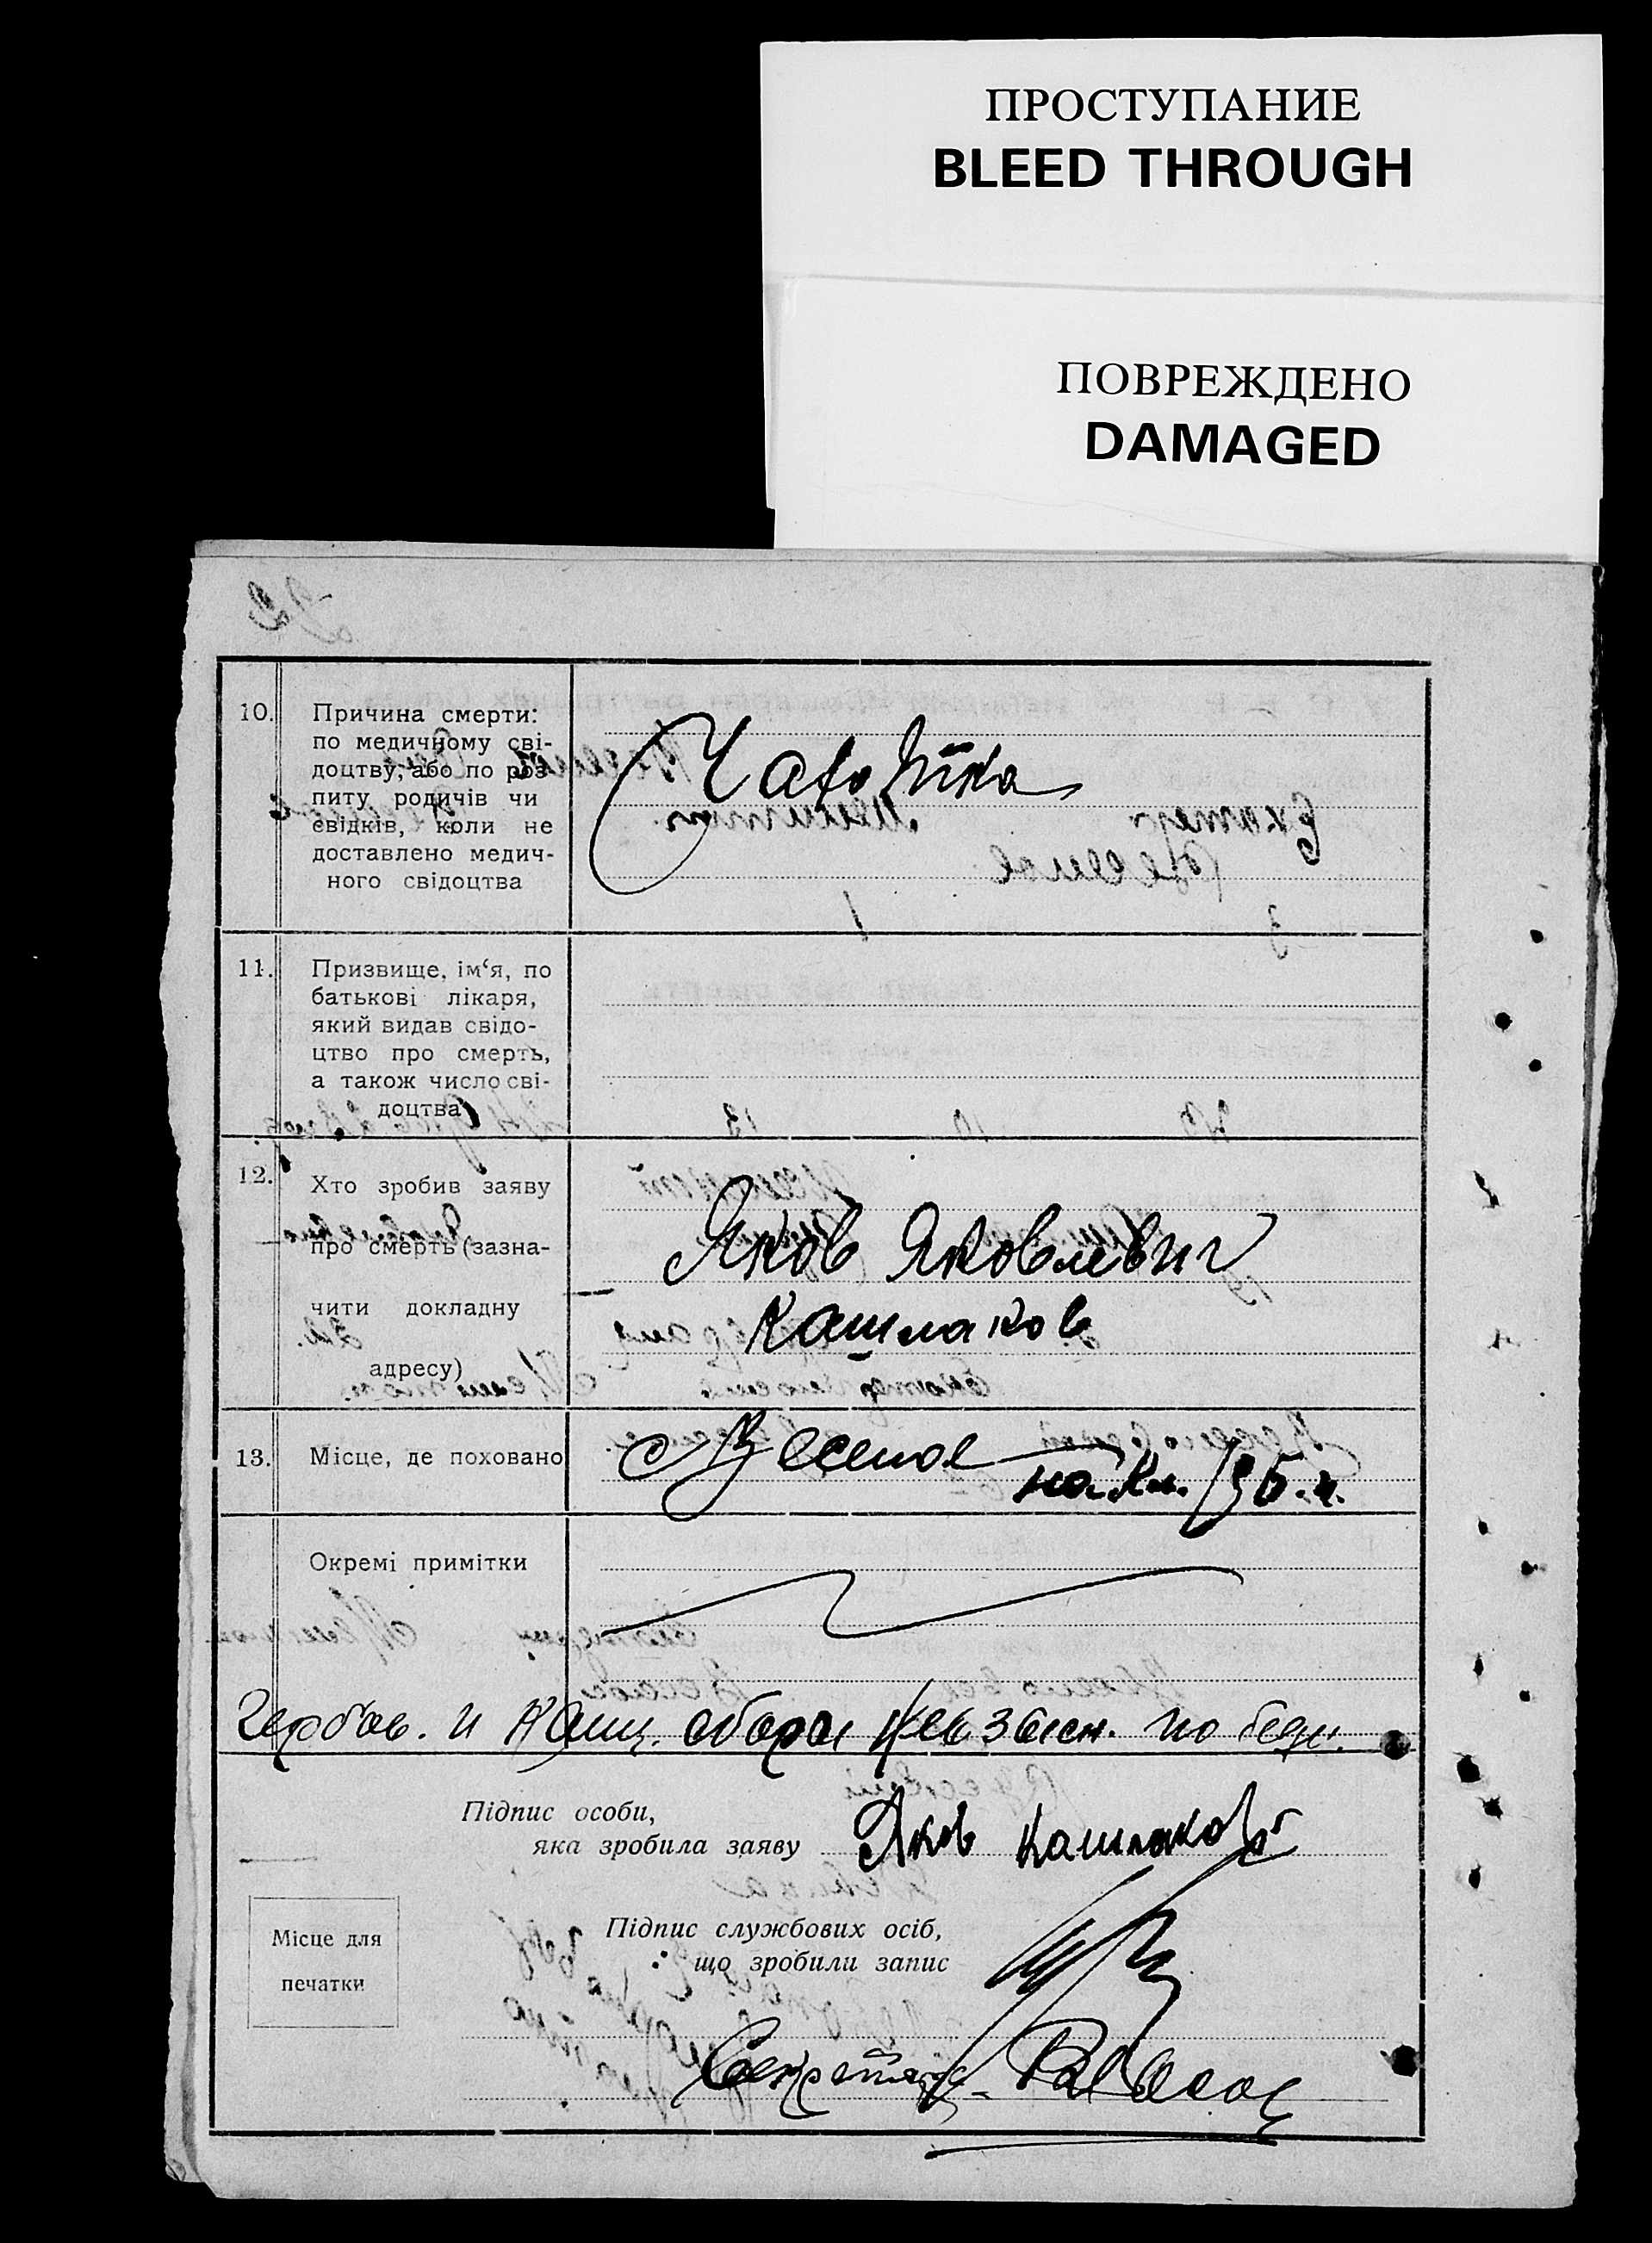 ПРОСТУПАНИЕ
BLEED THROUGH
ПОВРЕЖДЕНО
DAMAGED
10.
Причина смерти:
по медичному сві-
доцтву, або по роз-
питу родичів чи
свідків, коли не
доставлено медич-
ного свідоцтва
Чахотка
11.
Призвище, ім‘я, по
батькові лікаря,
який видав свідо-
цтво про смерть,
а також число сві-
доцтва
12.
Хто зробив заяву
про смерть (зазна-
чити докладну
адресу)
Яков Яковлевич
Кашлаков
13.
Місце, де поховано
Веселое
на кл.
Окремі примітки
Гербов. и Канц. сборы не взыск. по бедн.
Підпис особи,
яка зробила заяву
Яков Кашлаков
Місце для
печатки
Підпис службових осіб,
що зробили запис
Секретарь